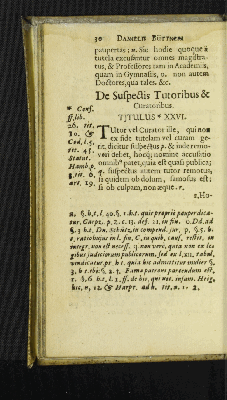 30 DANIELIS BÜTTNERI
paupertas; n. Sic hodie quoque à
tutela excusantur omnes magistra-
tus, & Professores tam in Academiis,
quam in Gymnasiis, o. non autem
Doctores, qua tales. &c.
De Suspectis Tutoribus &
Curatoribus.
TITULUS * XXVI.
* Conf.
ff. lib.
26. tit.
10. &
Cod. l. 5.
tit. 43.
Statut.
Hamb. p.
3. tit. 6.
art. 29.
Tutor vel Curator ille, qui non
ex fide tutelam vel curam ge-
rit, dicitur suspectus p. & inde remo-
veri debet, hocq; nomine accusatio
competit, quia est quasi publica;
q. suspectus autem tutor remotus,
si quidem ob dolum, famosus est:
si ob culpam, non æque. r.
1. Ho-
n. §. 6. h. t. l. 40. §. 1. h. t. quis proprie pauper dica-
tur. Carpz. p. 2. c. 13. def. 21. in fin. o. Dd. ad
§. 3. h. t. Dn. Schütz. in compend. jur. p. §. 5. h.
t.
integr. non est necess. q non verè, quia non ex le-
gibus judiciorum publicorum, sed ex l. XII. tabul.
vindicatur.
3. h. t. the: 6, 2. 5. Fama patrem parcendum est.
r. §. 6. h. t. l. 2. ff. de his, qui not. infam. Heig.
hic, n. 12. & Harpr. ad h. tit. n. 1. 2.